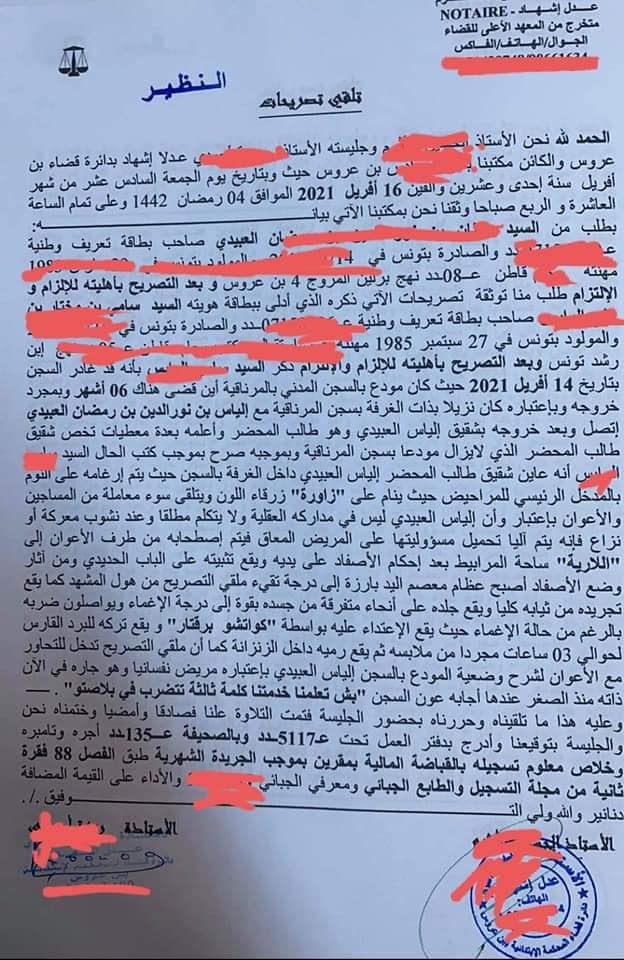 عدل إشهاد - NOTAIRE
متخرج من المعهد الأعلى للقضاء
الجوال/الهاتف/الفاكس
النظير
تلقي تصريحات
الحمد لله نحن الأستاذ وجليسته الأستاذة عدلا إشهاد بدائرة قضاء بن
عروس والكائن مكتبنا بن عروس حيث وبتاريخ يوم الجمعة السادس عشر من شهر
أفريل سنة إحدى وعشرين والفين 16 أفريل 2021 الموافق 04 رمضان 1442 وعلى تمام الساعة
العاشرة و الربع صباحا وثقنا نحن بمكتبنا الآتي بيانه:
بطلب من السيد العبيدي صاحب بطاقة تعريف وطنية
والصادرة بتونس في
مهنته قاطن عـ08ـدد نهج برلين المروج 4 بن عروس و بعد التصريح بأهليته للإلزام و
الإلتزام طلب منا توثقة تصريحات الآتي ذكره الذي أدلى ببطاقة هويته السيد
صاحب بطاقة تعريف وطنية والصادرة بتونس في
والمولود بتونس في 27 سبتمبر 1985 مهنته إبن
رشد تونس وبعد التصريح بأهليته للإلزام والإلتزام ذكر السيد بأنه قد غادر السجن
بتاريخ 14 أفريل 2021 حيث كان مودع بالسجن المدني بالمرناقية أين قضى هناك 06 أشهر وبمجرد
خروجه وبإعتباره كان نزيلا بذات الغرفة بسجن المرناقية مع إلياس بن نورالدين بن رمضان العبيدي
إتصل وبعد خروجه بشقيق إلياس العبيدي وهو طالب المحضر وأعلمه بعدة معطيات تخص شقيق
طالب المحضر الذي لايزال مودعا بسجن المرناقية وبموجبه صرح بموجب كتب الحال السيد
أنه عاين شقيق طالب المحضر إلياس العبيدي داخل الغرفة بالسجن حيث يتم إرغامه على النوم
بالمدخل الرئيسي للمراحيض حيث ينام على "زاورة" زرقاء اللون ويتلقى سوء معاملة من المساجين
والأعوان بإعتبار وأن إلياس العبيدي ليس في مداركه العقلية ولا يتكلم مطلقا وعند نشوب معركة أو
نزاع فإنه يتم آليا تحميل مسؤوليتها على المريض المعاق فيتم إصطحابه من طرف الأعوان إلى
"اللارية" ساحة المرابيط بعد إحكام الأصفاد على يديه ويقع تثبيته على الباب الحديدي ومن آثار
وضع الأصفاد أصبح عظام معصم اليد بارزة إلى درجة تقيء ملقي التصريح من هول المشهد كما يقع
تجريده من ثيابه كليا ويقع جلده على أنحاء متفرقة من جسده بقوة إلى درجة الإغماء ويواصلون ضربه
بالرغم من حالة الإغماء حيث يقع الإعتداء عليه بواسطة "كواتشو برقتار" و يقع تركه للبرد القارس
لحوالي 03 ساعات مجردا من ملابسه ثم يقع رميه داخل الزنزانة كما أن ملقي التصريح تدخل للتحاور
مع الأعوان لشرح وضعية المودع بالسجن إلياس العبيدي بإعتباره مريض نفسانيا وهو جاره في الآن
ذاته منذ الصغر عندها أجابه عون السجن "بش تعلمنا خدمتنا كلمة ثالثة تتضرب في بلاصتو".
وعليه هذا ما تلقيناه وحررناه بحضور الجليسة فتمت التلاوة علنا فصادقا وأمضيا وختمناه نحن
والجليسة بتوقيعنا وأدرج بدفتر العمل تحت عـ5117ـدد وبالصحيفة عـ135ـدد أجره وتامبره
وخلاص معلوم تسجيله بالقباضة المالية بمقرين بموجب الجريدة الشهرية طبق الفصل 88 فقرة
ثانية من مجلة التسجيل والطابع الجبائي ومعرفي الجبائي والأداء على القيمة المضافة
دنانير والله ولي التوفيق ./.
الأستاذ
الأستاذة
عدل إشهاد
الهاتف:
دائرة قضاء المحكمة الابتدائية ببن عروس